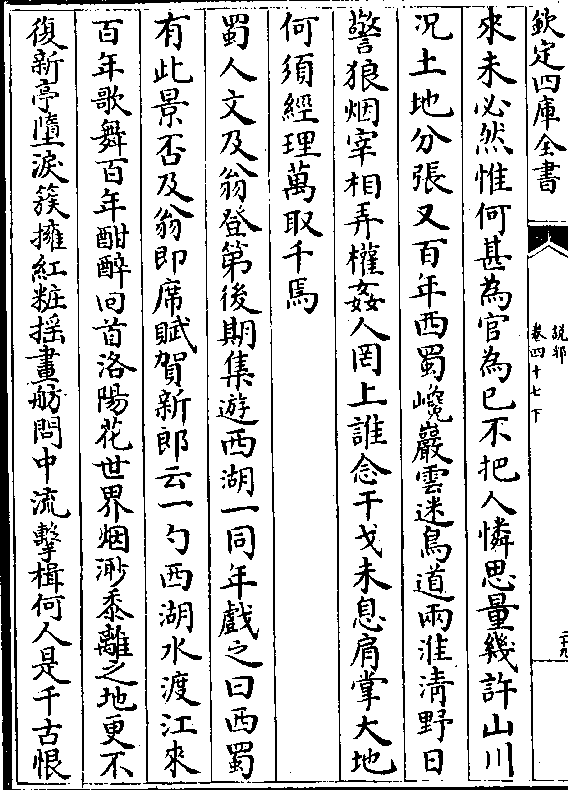 欽定四庫全書
說郛
卷四十七下
來未必然惟何甚為官為已不把人憐思量幾許山川
况土地分張又百年西蜀巉巖雲迷鳥道兩淮清野日
警狼烟宰相弄權姦人罔上誰念干戈未息肩掌大地
何須經理萬取千焉
蜀人文及翁登第後期集遊西湖一同年戲之曰西蜀
有此景否及翁即席賦賀新郎云一勺西湖水渡江來
百年歌舞百年酣醉回首洛陽花世界烟渺黍離之地更不
復新亭墮淚簇擁紅粧揺畫舫問中流擊楫何人是千古恨